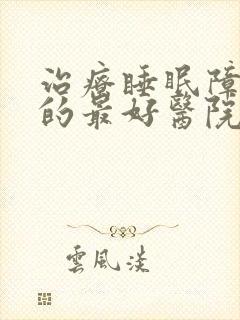 治療睡眠障
的最好醫院
雲風淡